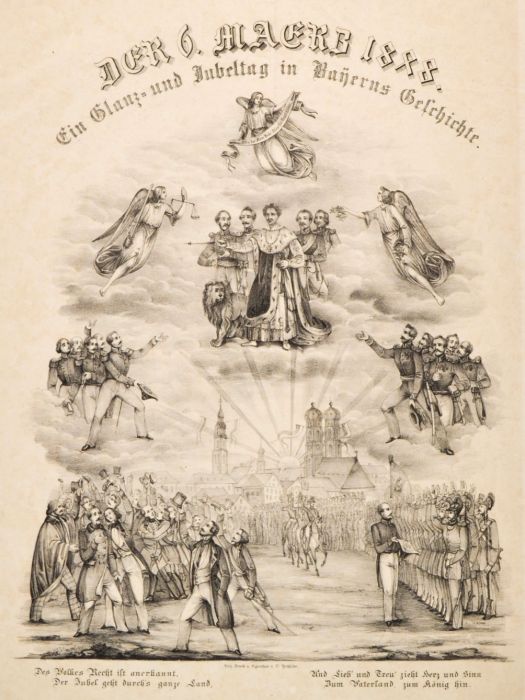 DER 6. MAERZ 1848.
Ein Glanz- und Jubeltag in Bayerns Geschichte.
Druck u. Eigenthum v.
Des Volkes Recht ist anerkannt,
Der Jubel geht durch's ganze Land,
Und Lieb' und Treu' zieht Herz und Sinn
Zum Vaterland zum König hin.